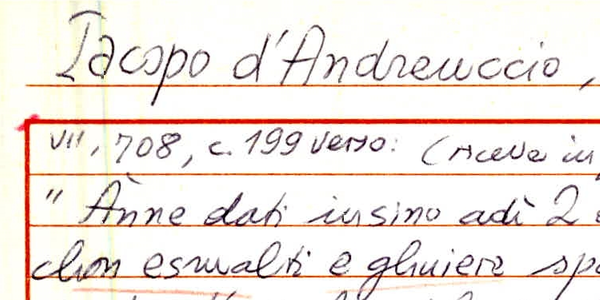 Iacopo d'Andreuccio,
VII, 708, c. 199 verso: (riceve in
" Ànne dati insino adì 2
chon esmalti e ghiere